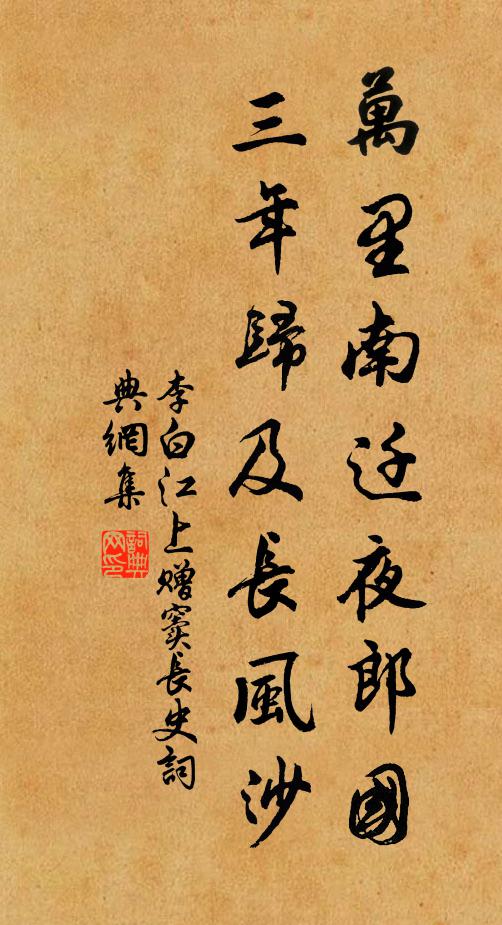 萬里南迁夜郎國
三年歸及長風沙
李白江上赠窦長史詞
典網集
詞典网印